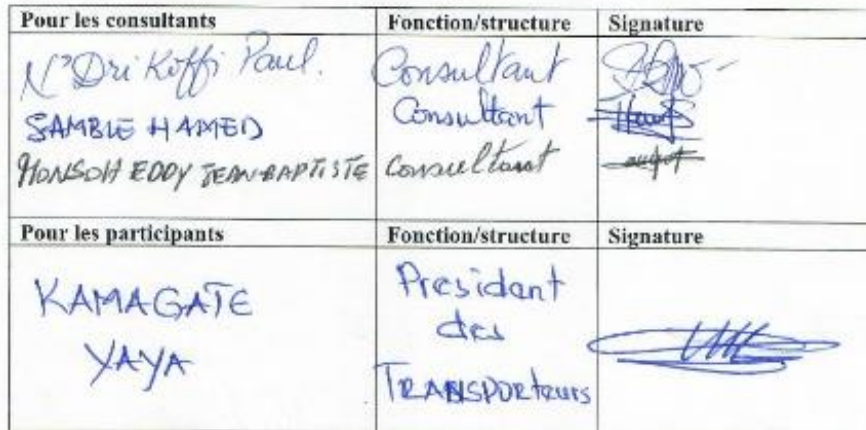 Pour les consultants Fonction/structure Signature
N'Dri Koffi Paul. Consultant
SAMBLE HAMED Consultant
MONSOH EDDY JEAN-BAPTISTE Consultant
Pour les participants Fonction/structure Signature
KAMAGATE Présidant
YAYA des
TRANSPORTeurs